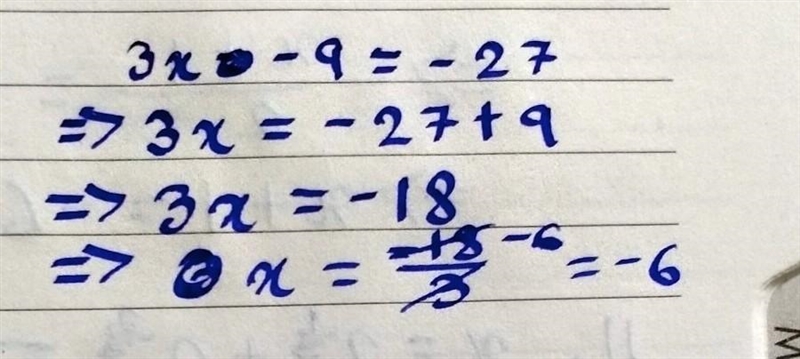 3x - 9 = - 27
=> 3x = - 27 + 9
=> 3x = -18
=> x = -18/3 -6 = -6
M